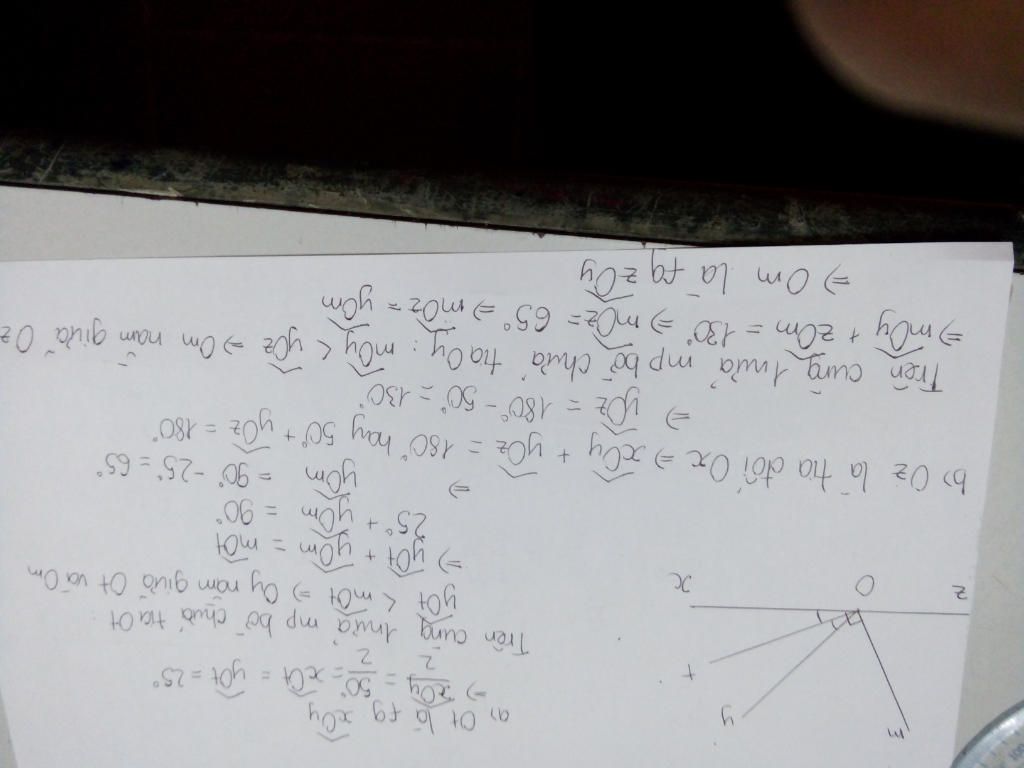 a) Ot là fg xOy
⇒ xOy/2 = 50°/2 = xOt = yOt = 25°
Trên cùng 1 nửa mp bờ chứa tia Ot:
yOt < mOt ⇒ Oy nằm giữa Ot và Om
⇒ yOt + yOm = mOt
25° + yOm = 90°
⇒ yOm = 90° - 25° = 65°
m
y
t
z O x
b) Oz là tia đối Ox ⇒ xOy + yOz = 180° hay 50° + yOz = 180°
⇒ yOz = 180° - 50° = 130°
Trên cùng 1 nửa mp bờ chứa tia Oy: mOy < yOz ⇒ Om nằm giữa Oz
⇒ mOy + zOm = 130° ⇒ mOz = 65° ⇒ mOz = yOm
⇒ Om là fg zOy